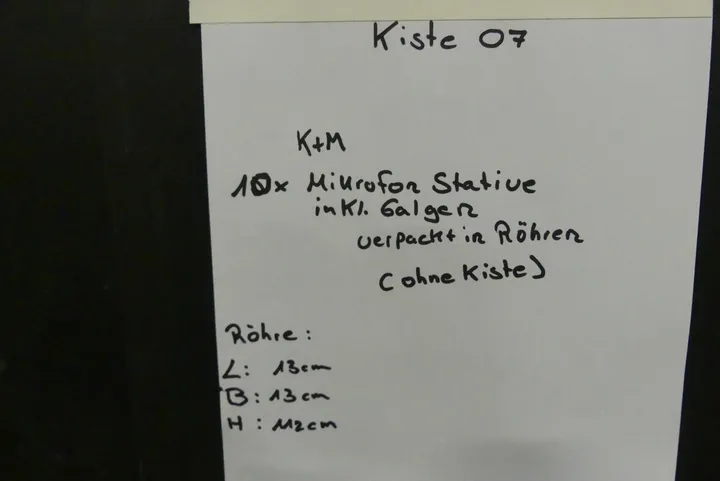 Kiste 07
K+M
10x Mikrofon Stative
inkl. Galgen
verpackt in Röhren
(ohne Kiste)
Röhre:
L: 13cm
B: 13cm
H: 112cm